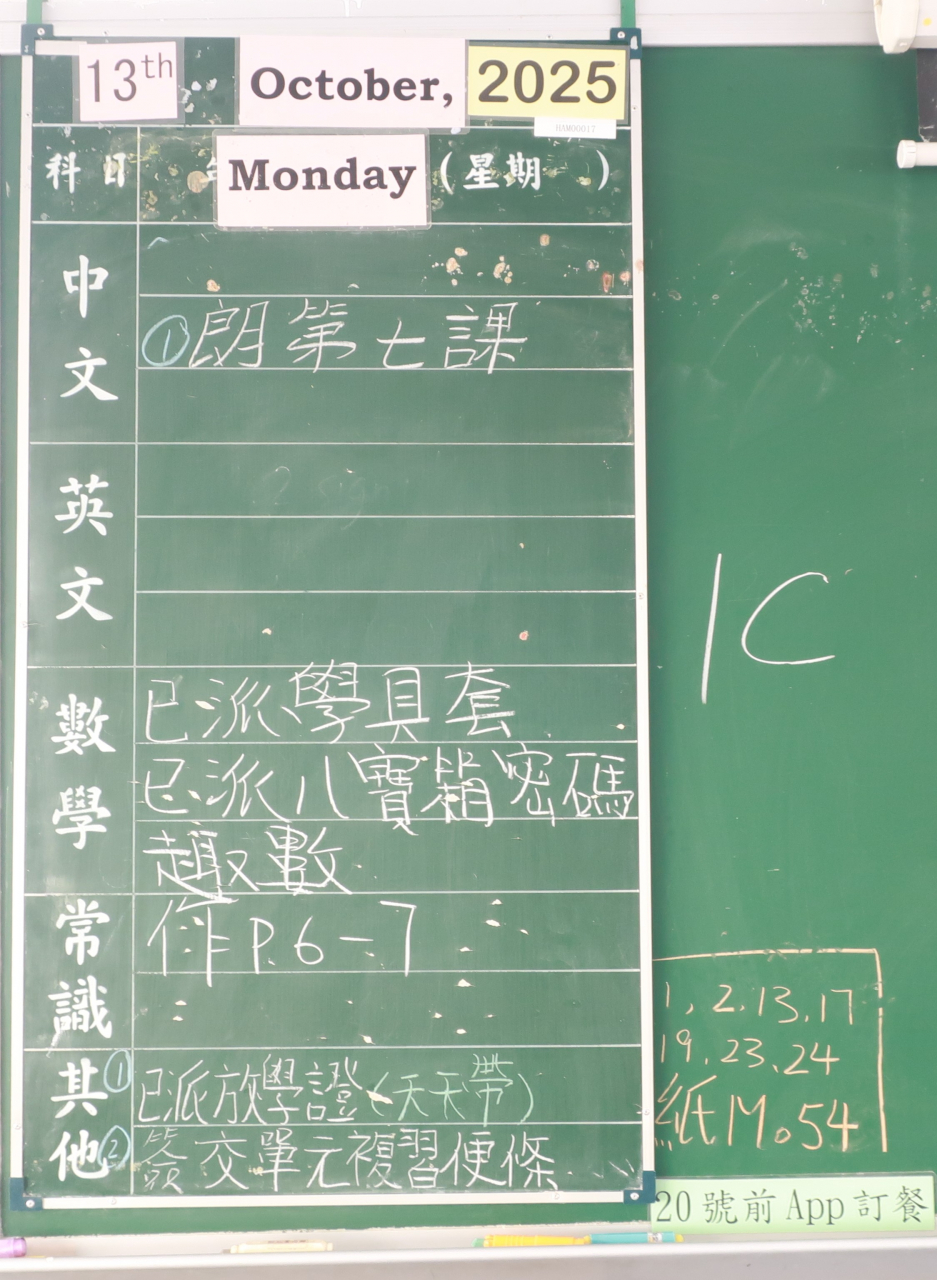 13th October, 2025
HAM00017
科目
Monday (星期 )
中文
① 朗第七課
英文
數學
已派學具套
已派八寶箱密碼
趣數
常識
作 P.6-7
其他
① 已派放學證(天天帶)
② 簽交單元複習便條
1C
1, 2, 13, 17
19, 23, 24
紙 M。54
20號前App訂餐